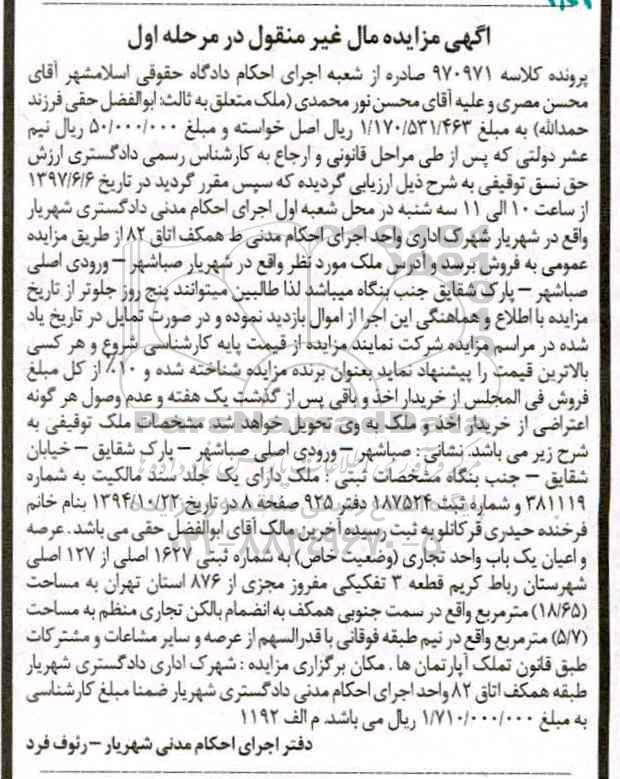 آگهی مزایده مال غیر منقول در مرحله اول
پرونده کلاسه ۹۷۰۹۷۱ صادره از شعبه اجرای احکام دادگاه حقوقی اسلامشهر آقای
محسن مصری و علیه آقای محسن نور محمدی (ملک متعلق به ثالث: ابوالفضل حقی فرزند
حمدالله) به مبلغ ۱/۱۷۰/۵۳۱/۴۶۳ ریال اصل خواسته و مبلغ ۵۰/۰۰۰/۰۰۰ ریال نیم
عشر دولتی که پس از طی مراحل قانونی و ارجاع به کارشناس رسمی دادگستری ارزش
حق نسق توقیفی به شرح ذیل ارزیابی گردیده که سپس مقرر گردید در تاریخ ۱۳۹۷/۶/۶
از ساعت ۱۰ الی ۱۱ سه شنبه در محل شعبه اول اجرای احکام مدنی دادگستری شهریار
واقع در شهریار شهرک اداری واحد اجرای احکام مدنی ط همکف اتاق ۸۲ از طریق مزایده
عمومی به فروش برسد و آدرس ملک مورد نظر واقع در شهریار صباشهر – ورودی اصلی
صباشهر – پارک شقایق جنب بنگاه میباشد لذا طالبین میتوانند پنج روز جلوتر از تاریخ
مزایده با اطلاع و هماهنگی این اجرا از اموال بازدید نموده و در صورت تمایل در تاریخ یاد
شده در مراسم مزایده شرکت نمایند مزایده از قیمت پایه کارشناسی شروع و هر کسی
بالاترین قیمت را پیشنهاد نماید بعنوان برنده مزایده شناخته شده و ۱۰٪ از کل مبلغ
فروش فی المجلس از خریدار اخذ و باقی پس از گذشت یک هفته و عدم وصول هر گونه
اعتراضی از خریدار اخذ و ملک به وی تحویل خواهد شد. مشخصات ملک توقیفی به
شرح زیر می باشد. نشانی : صباشهر – ورودی اصلی صباشهر – پارک شقایق – خیابان
شقایق – جنب بنگاه مشخصات ثبتی : ملک دارای یک جلد سند مالکیت به شماره
۳۸۱۱۱۹ و شماره ثبت ۱۸۷۵۲۴ دفتر ۹۲۵ صفحه ۸ در تاریخ ۱۳۹۴/۱۰/۲۲ بنام خانم
فرخنده حیدری قرکانلو به ثبت رسیده آخرین مالک آقای ابوالفضل حقی می باشد . عرصه
و اعیان یک باب واحد تجاری (وضعیت خاص) به شماره ثبتی ۱۶۲۷ اصلی از ۱۲۷ اصلی
شهرستان رباط کریم قطعه ۳ تفکیکی مفروز مجزی از ۸۷۶ استان تهران به مساحت
(۱۸/۶۵) مترمربع واقع در سمت جنوبی همکف به انضمام بالکن تجاری منظم به مساحت
(۵/۷) مترمربع واقع در نیم طبقه فوقانی با قدرالسهم از عرصه و سایر مشاعات و مشترکات
طبق قانون تملک آپارتمان ها . مکان برگزاری مزایده : شهرک اداری دادگستری شهریار
طبقه همکف اتاق ۸۲ واحد اجرای احکام مدنی دادگستری شهریار ضمنا مبلغ کارشناسی
به مبلغ ۱/۷۱۰/۰۰۰/۰۰۰ ریال می باشد. م الف ۱۱۹۲
دفتر اجرای احکام مدنی شهریار – رئوف فرد